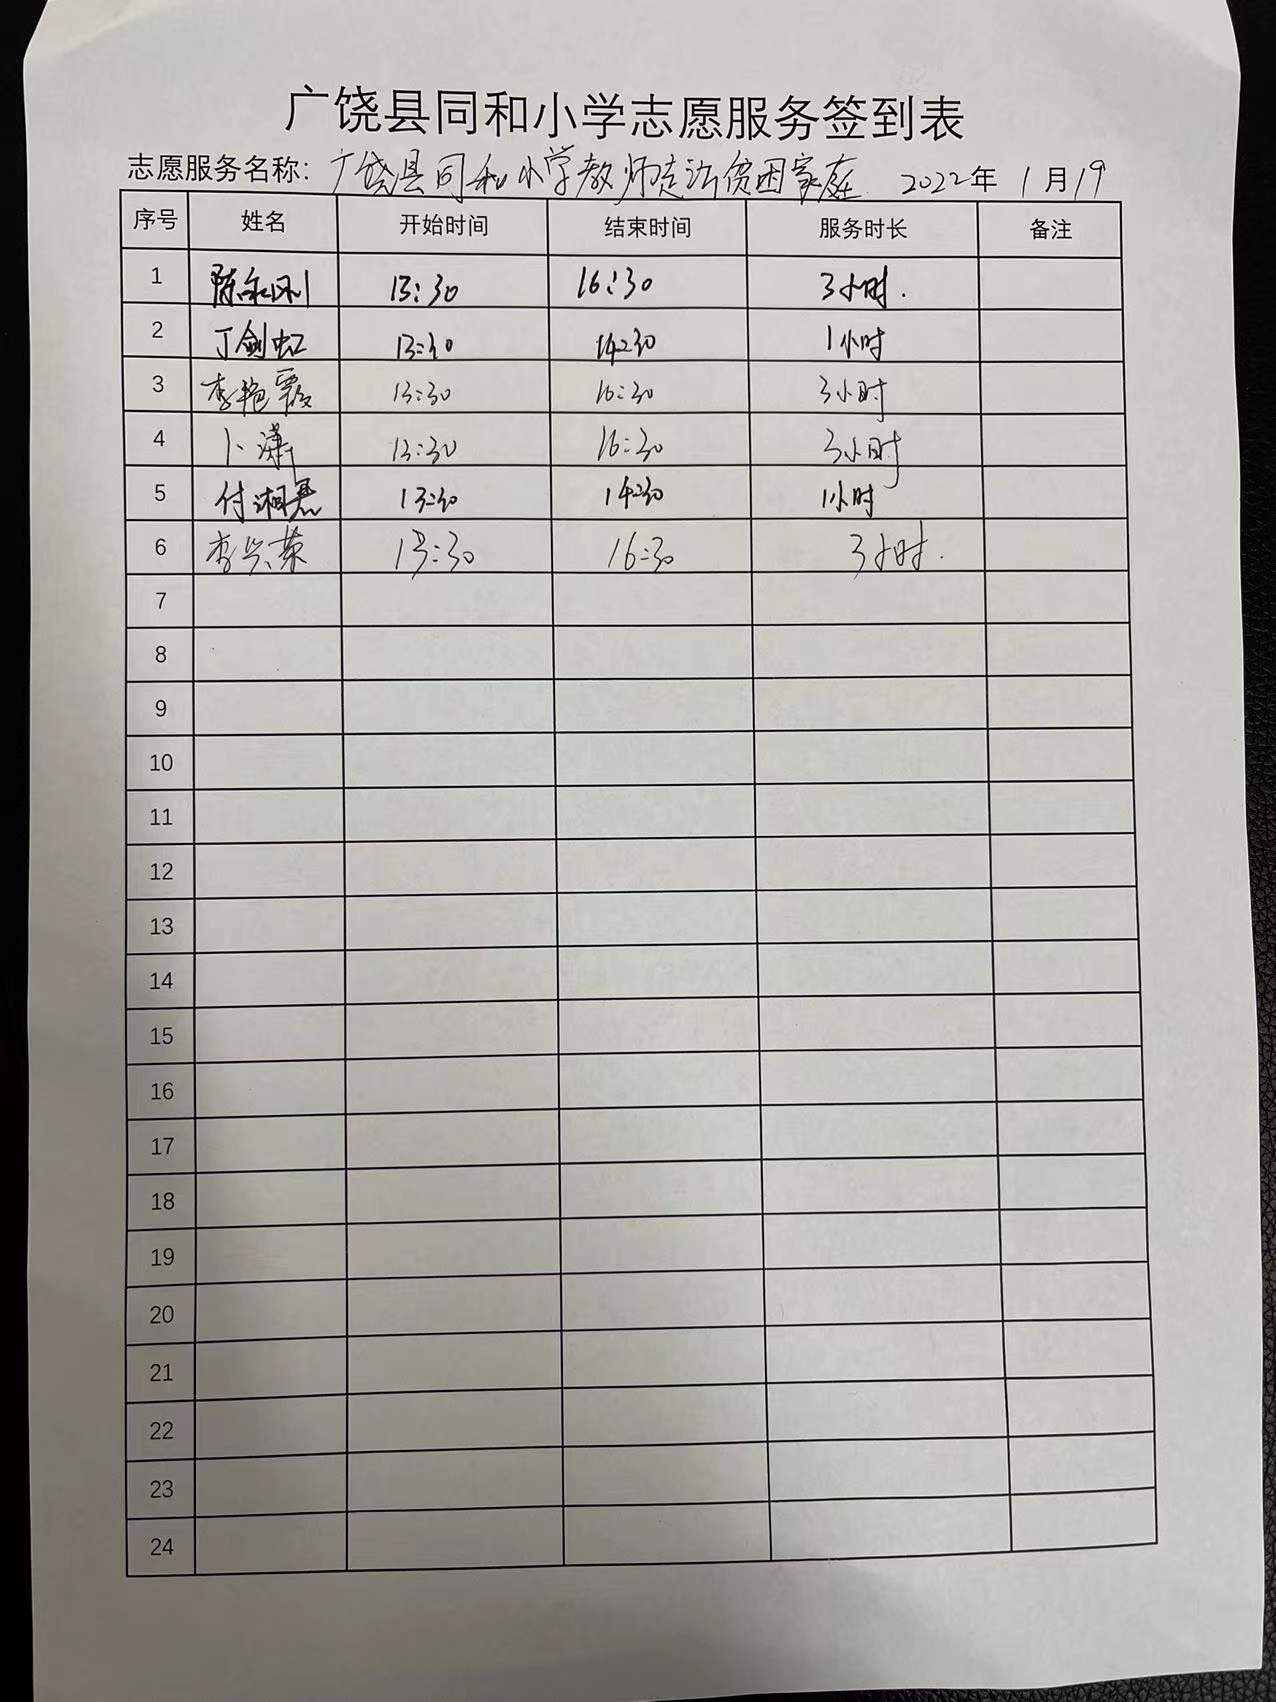 广饶县同和小学志愿服务签到表
志愿服务名称: 广饶县同和小学教师走访贫困家庭 2022年 1月19
序号 姓名 开始时间 结束时间 服务时长 备注
1 陈永刚 13:30 16:30 3小时.
2 丁剑虹 13:30 14:30 1小时
3 李艳霞 13:30 16:30 3小时
4 卜潇 13:30 16:30 3小时
5 付湘君 13:30 14:30 1小时
6 李兴荣 13:30 16:30 3小时.
7
8
9
10
11
12
13
14
15
16
17
18
19
20
21
22
23
24